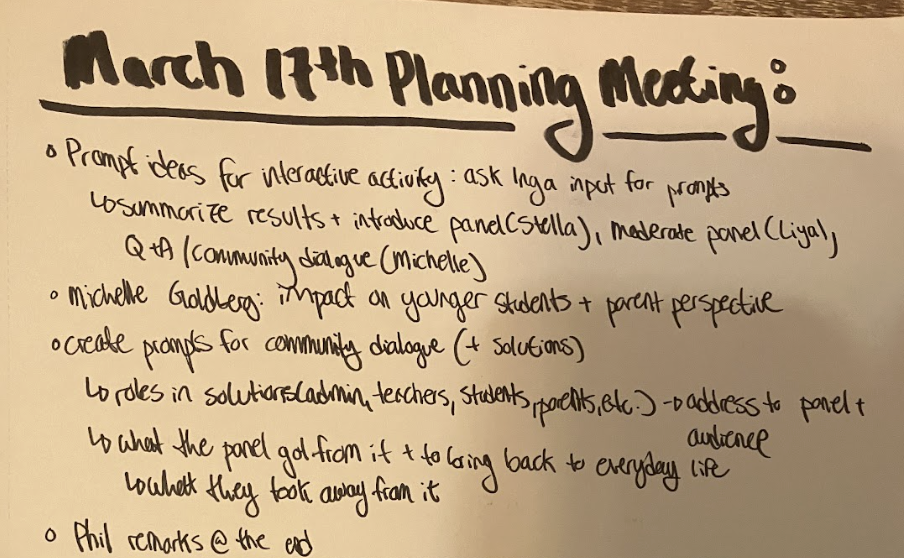 March 17th Planning Meeting:
◦ Prompt ideas for interactive activity: ask Inga input for prompts
↳ summarize results + introduce panel (Stella), moderate panel (Liya),
Q+A / community dialogue (Michelle)
◦ Michelle Goldberg: impact on younger students + parent perspective
◦ create prompts for community dialogue (+ solutions)
↳ roles in solutions (admin, teachers, students, parents, etc.) → address to panel +
audience
↳ what the panel got from it + to bring back to everyday life
↳ what they took away from it
◦ Phil remarks @ the end